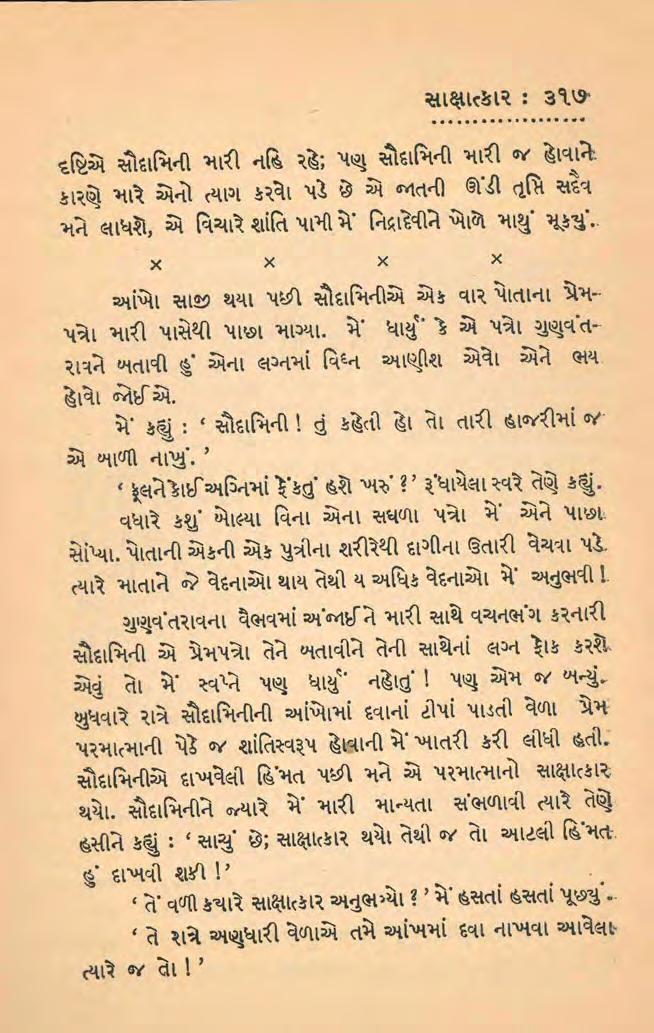 સાક્ષાત્કાર : ૩૧૭
દૃષ્ટિએ સૌદામિની મારી નહિ રહે; પણ સૌદામિની મારી જ હોવાને
કારણે મારે એનો ત્યાગ કરવો પડે છે એ જાતની ઊંડી તૃપ્તિ સદૈવ
મને લાધશે, એ વિચારે શાંતિ પામી મેં નિદ્રાદેવીને ખોળે માથું મૂકયું.
× × × ×
આંખો સાજી થયા પછી સૌદામિનીએ એક વાર પોતાના પ્રેમ-
પત્રો મારી પાસેથી પાછા માગ્યા. મેં ધાર્યું કે એ પત્રો ગુણવંત-
રાવને બતાવી હું એના લગ્નમાં વિઘ્ન આણીશ એવો એને ભય
હોવો જોઈએ.
મેં કહ્યું : ‘ સૌદામિની! તું કહેતી હો તો તારી હાજરીમાં જ
એ બાળી નાખું. ’
‘ ફૂલને કોઈ અગ્નિમાં ફેંકતું હશે ખરું ?’ રૂંધાયેલા સ્વરે તેણે કહ્યું.
વધારે કશું બોલ્યા વિના એના સઘળા પત્રો મેં એને પાછા
સોંપ્યા. પોતાની એકની એક પુત્રીના શરીરેથી દાગીના ઉતારી વેચવા પડે
ત્યારે માતાને જે વેદનાઓ થાય તેથી ય અધિક વેદનાઓ મેં અનુભવી !
ગુણવંતરાવના વૈભવમાં અંજાઈને મારી સાથે વચનભંગ કરનારી
સૌદામિની એ પ્રેમપત્રો તેને બતાવીને તેની સાથેનાં લગ્ન ફોક કરશે
એવું તો મેં સ્વપ્ને પણ ધાર્યું નહોતું ! પણ એમ જ બન્યું.
બુધવારે રાત્રે સૌદામિનીની આંખોમાં દવાનાં ટીપાં પાડતી વેળા પ્રેમ
પરમાત્માની પેઠે જ શાંતિસ્વરૂપ હોવાની મેં ખાતરી કરી લીધી હતી.
સૌદામિનીએ દાખવેલી હિંમત પછી મને એ પરમાત્માનો સાક્ષાત્કાર
થયો. સૌદામિનીને જ્યારે મેં મારી માન્યતા સંભળાવી ત્યારે તેણે
હસીને કહ્યું : ‘ સાચું છે; સાક્ષાત્કાર થયો તેથી જ તો આટલી હિંમત
હું દાખવી શકી !’
‘ તેં વળી કયારે સાક્ષાત્કાર અનુભવ્યો ? ’ મેં હસતાં હસતાં પૂછયું.
‘ તે રાત્રે અણધારી વેળાએ તમે આંખમાં દવા નાખવા આવેલા
ત્યારે જ તો ! ’